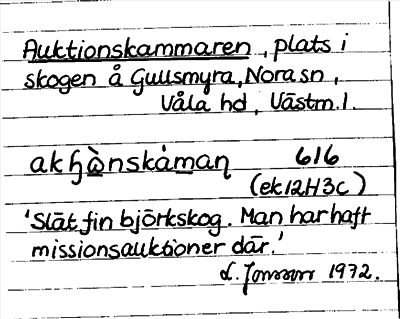 Auktionskammaren, plats i
skogen å Gullsmyra, Nora sn,
Våla hd, Västm. l.
akɧònskáman 616
(ek12H3c)
'Slät, fin björkskog. Man har haft
missionsauktioner där.'
L. Jonsson 1972.